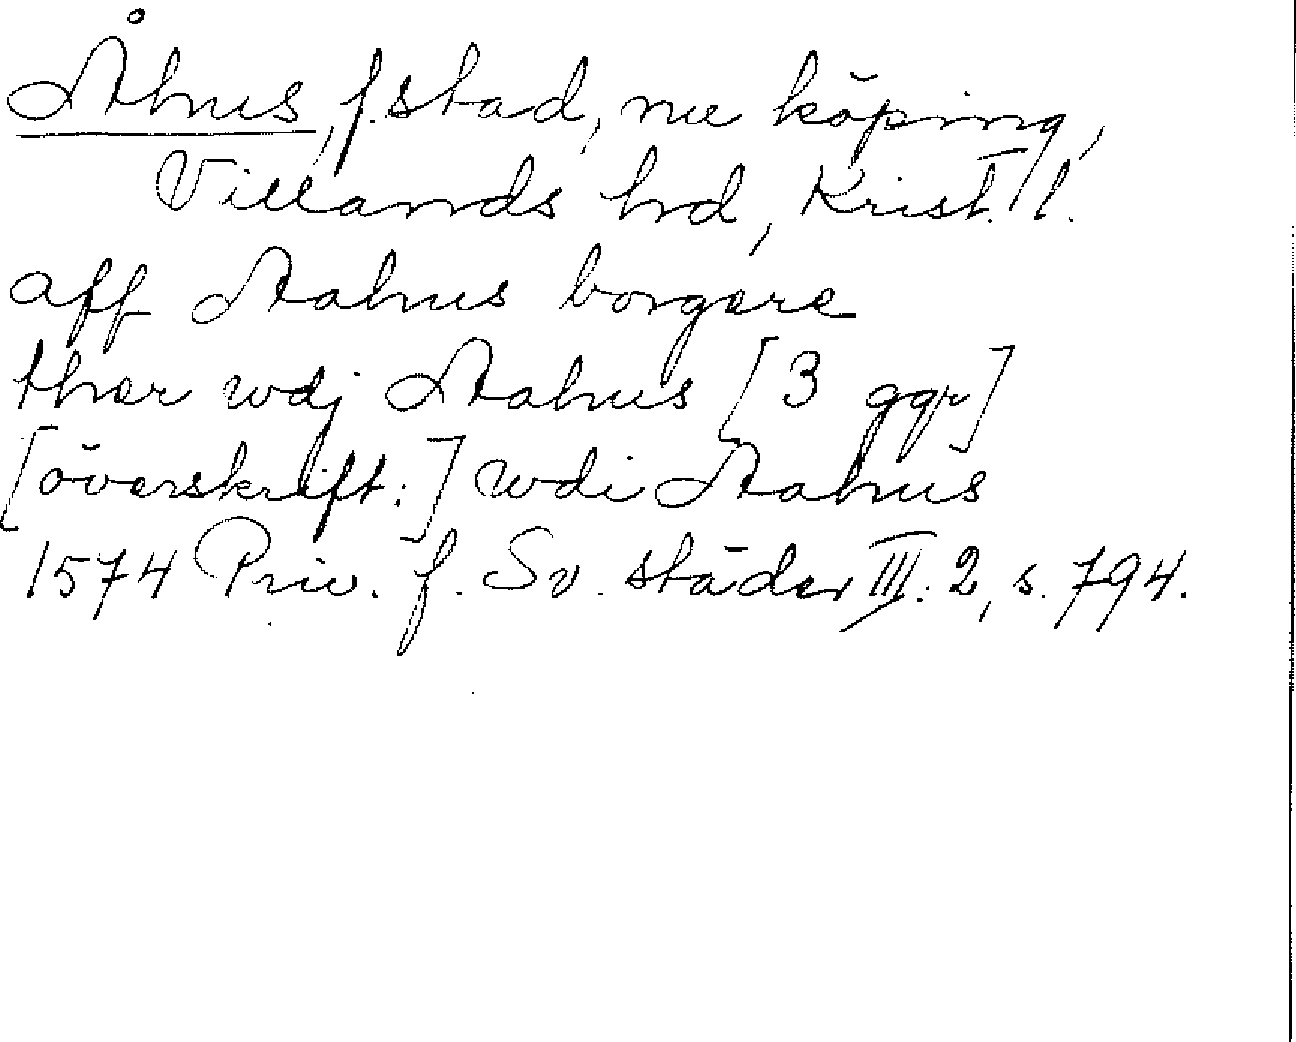 Åhus, f. stad, nu köping,
Villands hd, Krist. l.
aff Aahus borgere
ther wdj Aahus [3 ggr]
[överskrift:] wdi Aahus
1574 Priv. f. Sv. städer III. 2, s. 794.